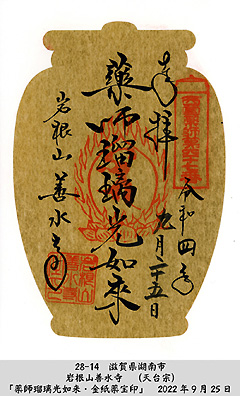 奉拝
令和四年
九月二十五日
薬師瑠璃光如来
岩根山 善水寺
28-14 滋賀県湖南市
岩根山善水寺 (天台宗)
「薬師瑠璃光如来・金紙薬宝印」 2022年9月25日